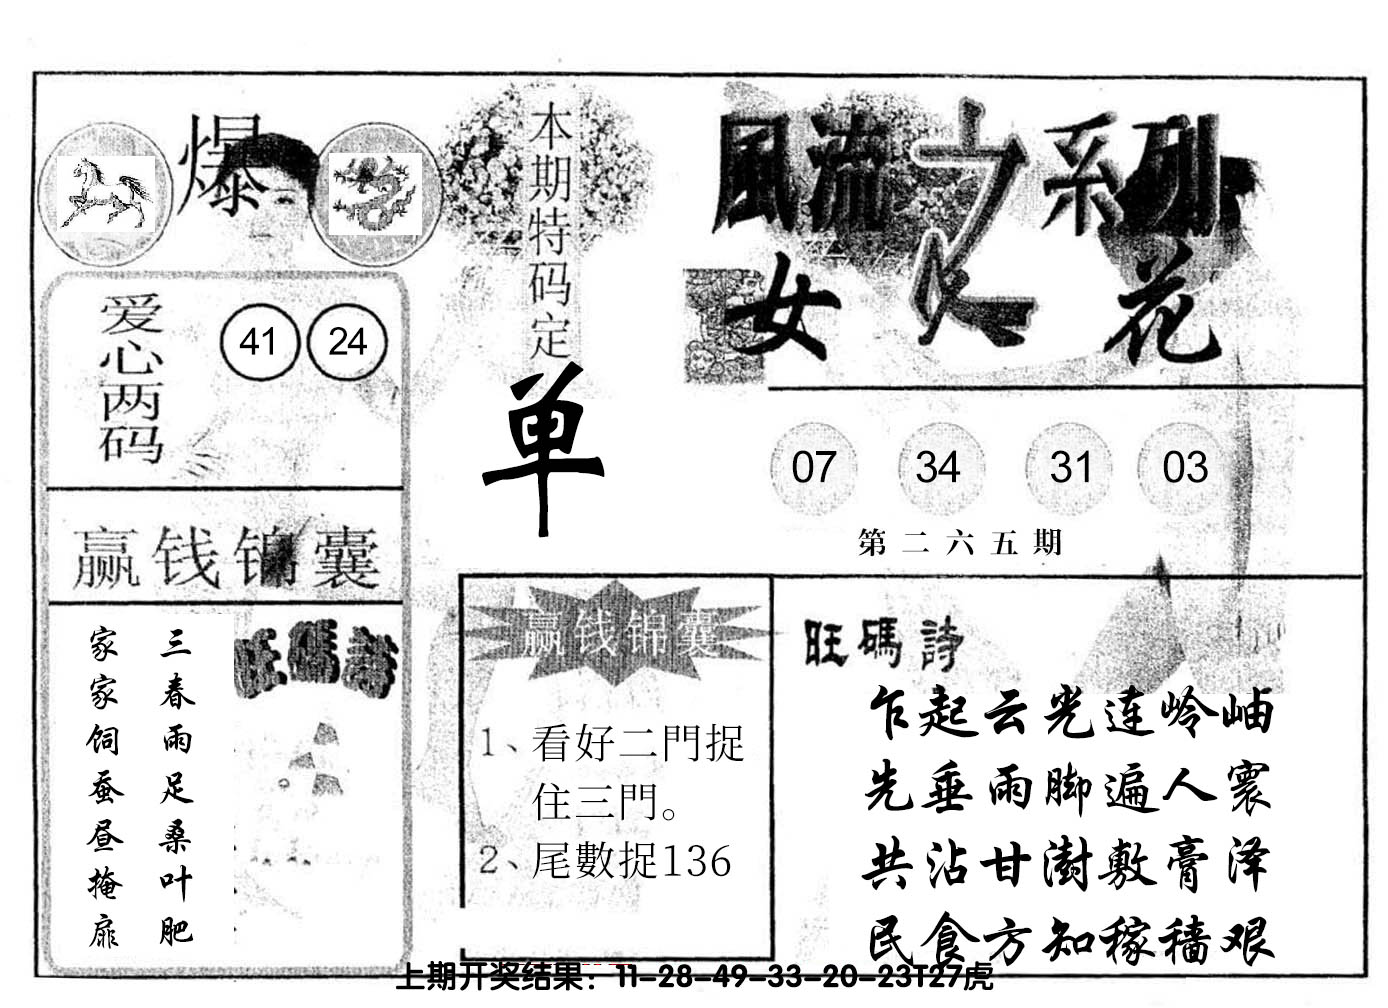 爆
本期特码定
单
風流之系列
女人花
爱心两码
41 24
07 34 31 03
第二六五期
赢钱锦囊
旺碼詩
三春雨足桑叶肥
家家饲蚕昼掩扉
赢钱锦囊
1、看好二門捉
住三門。
2、尾數捉136
旺碼詩
乍起云光连岭岫
先垂雨脚遍人寰
共沾甘澍敷膏泽
民食方知稼穑艰
上期开奖结果：11-28-49-33-20-23T27虎